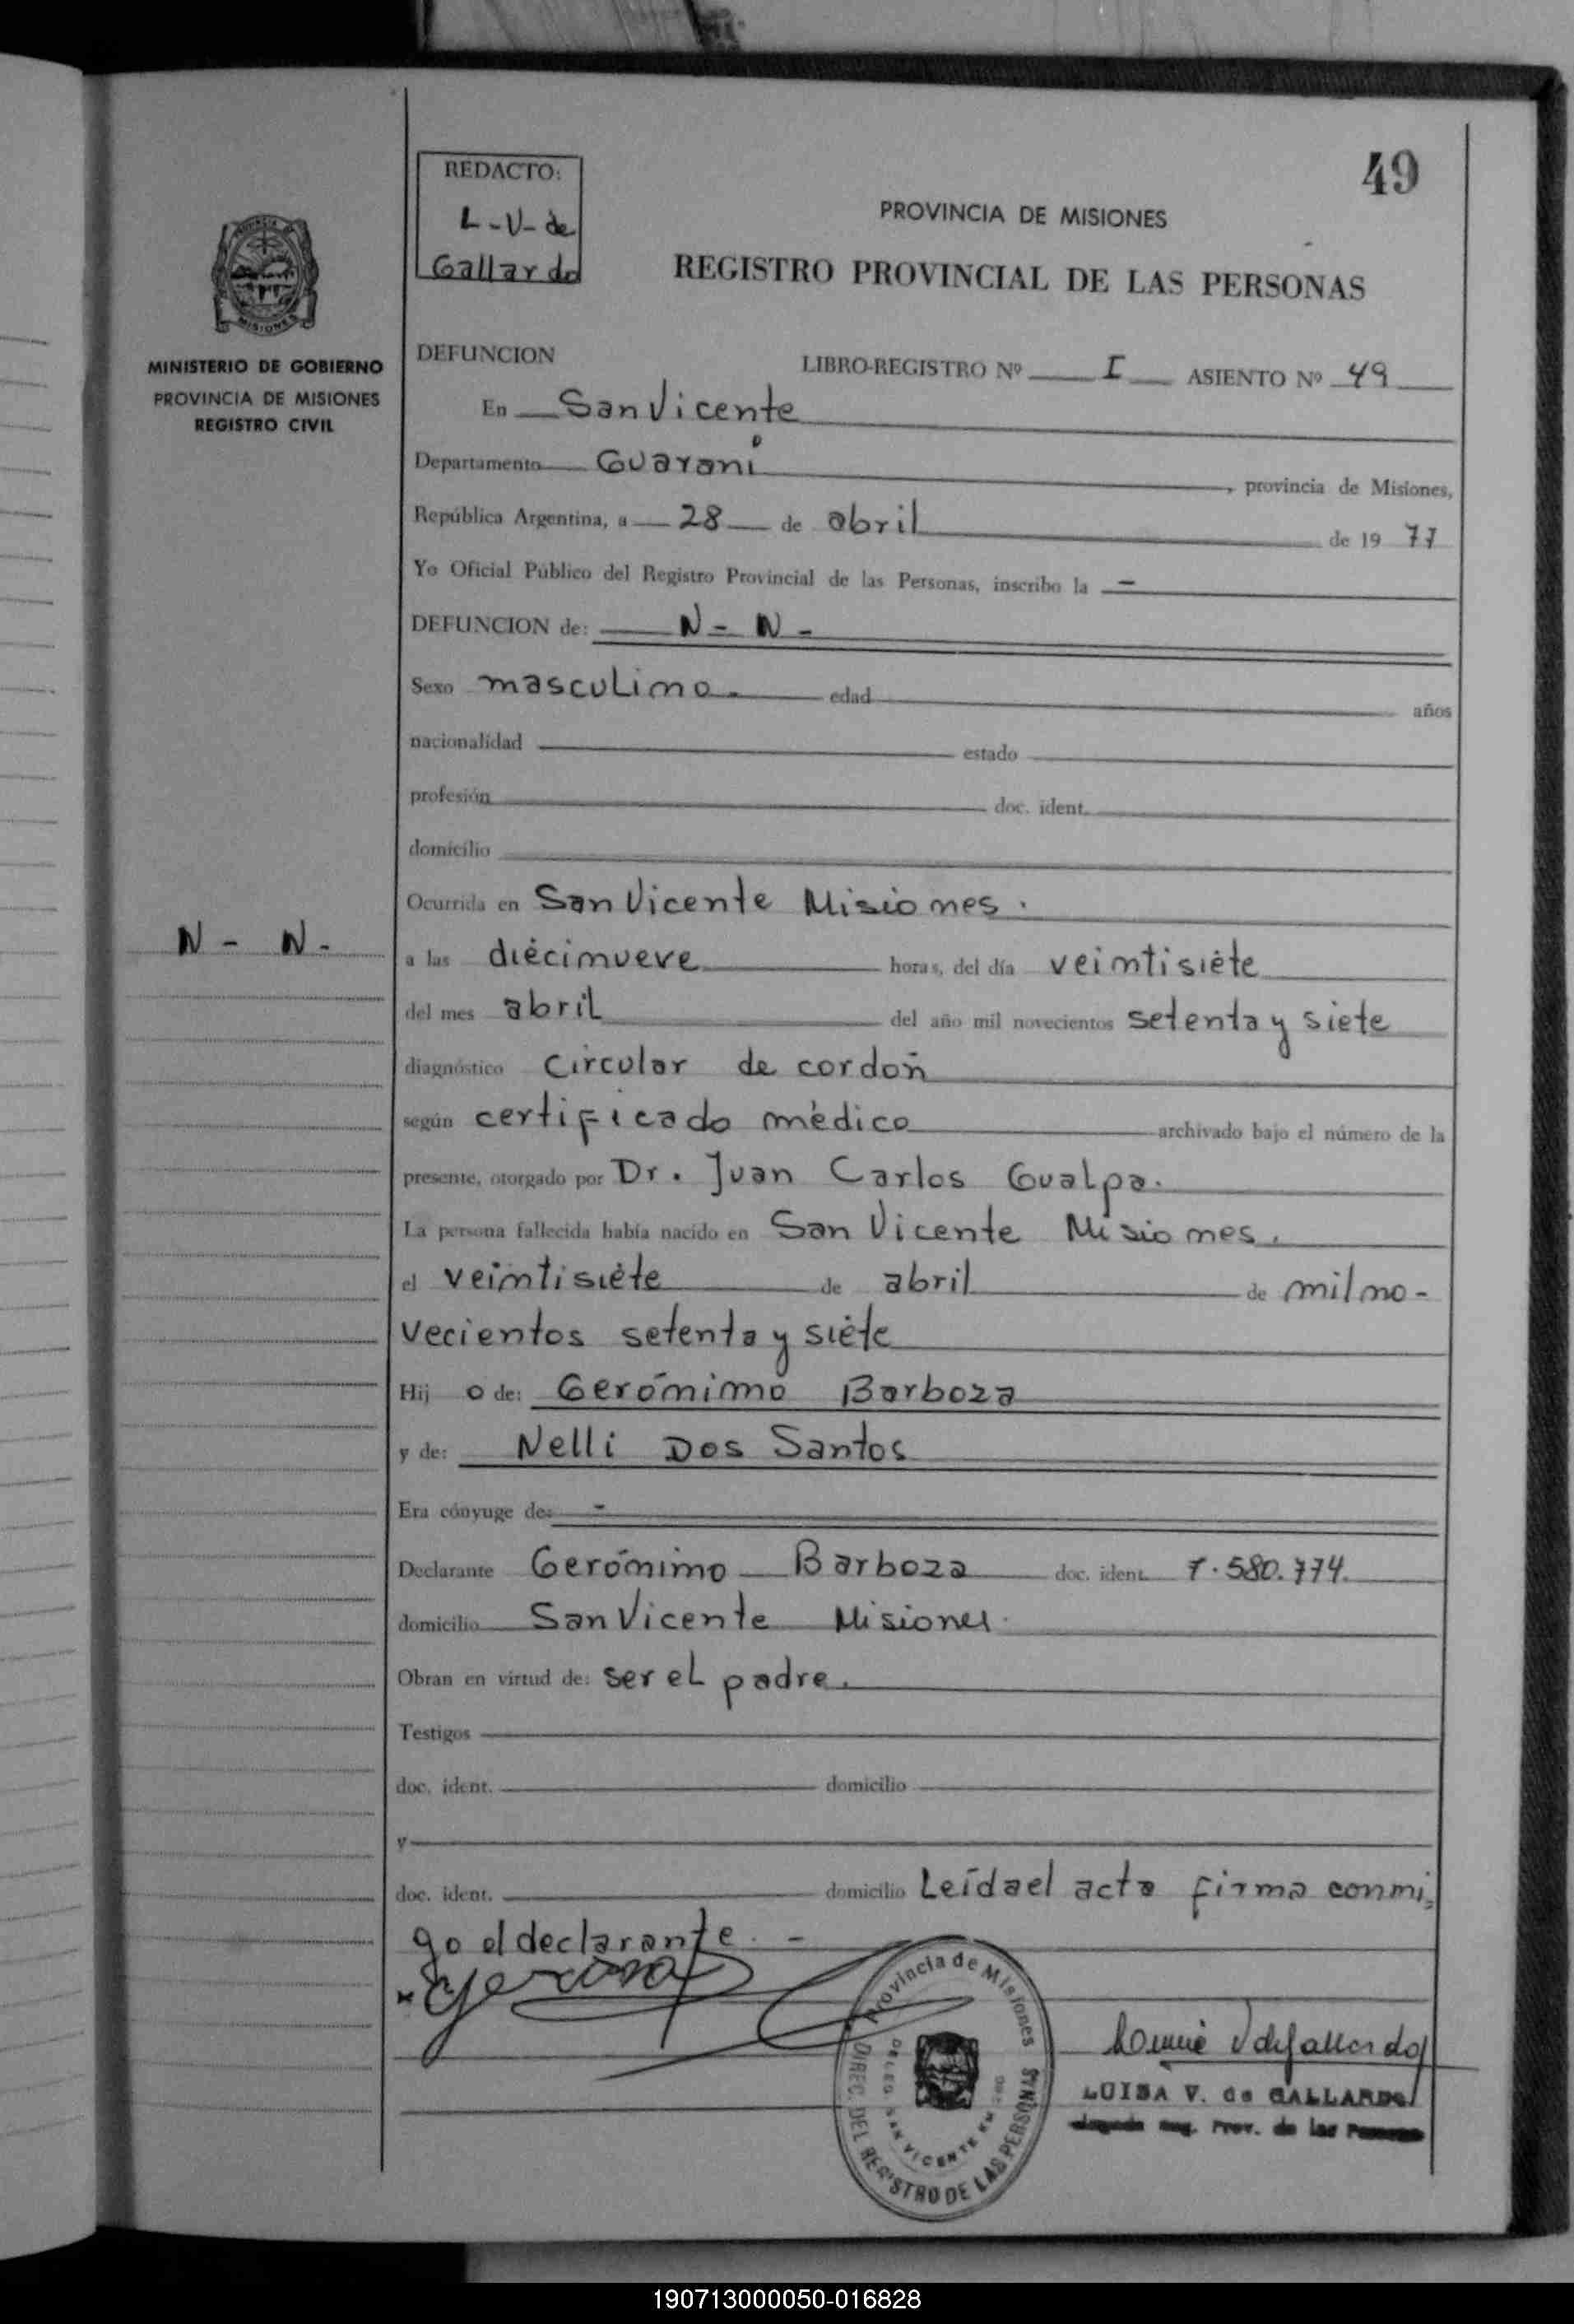 49
REDACTO:
L-V-de
Gallardo
PROVINCIA DE MISIONES
REGISTRO PROVINCIAL DE LAS PERSONAS
MISIONES
MINISTERIO DE GOBIERNO
PROVINCIA DE MISIONES
REGISTRO CIVIL
DEFUNCION LIBRO-REGISTRO Nº I ASIENTO Nº 49
En San Vicente
Departamento Guaraní, provincia de Misiones,
República Argentina, a 28 de abril de 19 77
Yo Oficial Público del Registro Provincial de las Personas, inscribo la -
DEFUNCION de: N - N -
Sexo masculino. edad años
nacionalidad estado
profesión doc. ident.
domicilio
Ocurrida en San Vicente Misiones.
N - N -
a las diécinueve horas, del día veintisiéte
del mes abril del año mil novecientos setenta y siete
diagnóstico circular de cordoñ
según certificado mèdico archivado bajo el número de la
presente, otorgado por Dr. Juan Carlos Gualpa.
La persona fallecida había nacido en San Vicente Misiones.
el veintisiéte de abril de mil no-
vecientos setenta y siéte
Hij o de: Gerónimo Barboza
y de: Nelli Dos Santos
Era cónyuge de: -
Declarante Gerónimo Barboza doc. ident. 7.580.774.
domicilio San Vicente Misiones.
Obran en virtud de: ser el padre.
Testigos
doc. ident. domicilio
y
doc. ident. domicilio Leída el acta firma conmi-
go el declarante. -
Provincia de Misiones
DIREC. DEL REGISTRO DE LAS PERSONAS
DELEG. SAN VICENTE KM
LUISA V. de GALLARDO
Reg. Prov. de las Personas
190713000050-016828